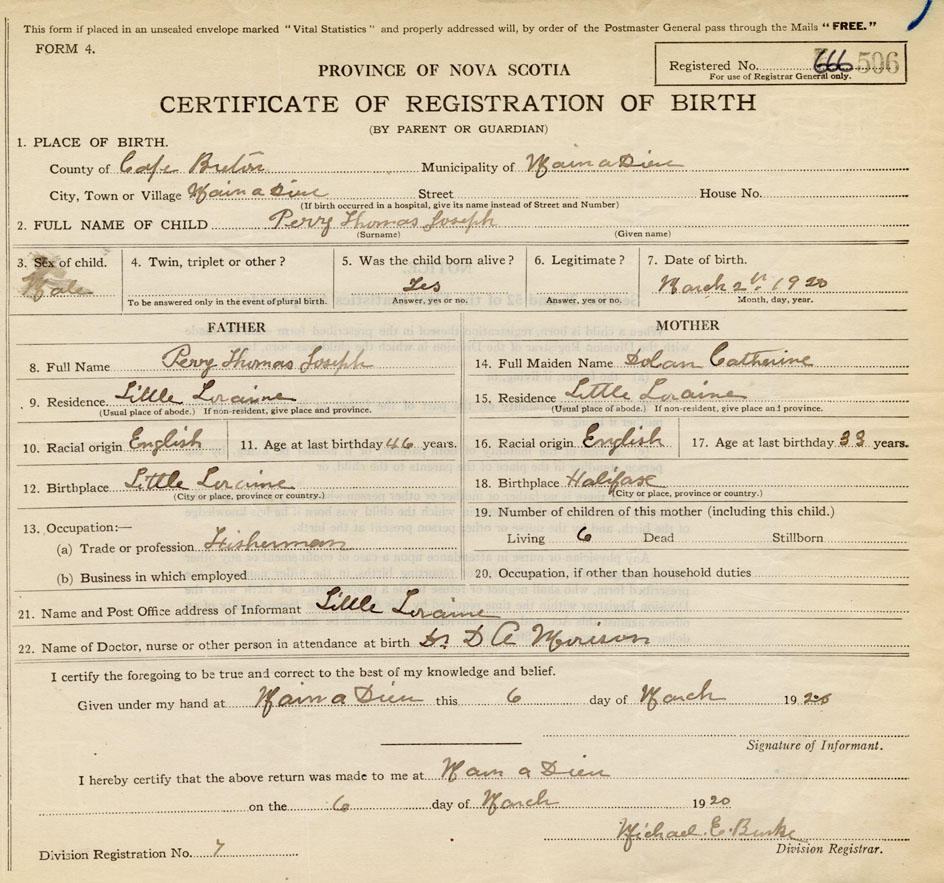 This form if placed in an unsealed envelope marked "Vital Statistics" and properly addressed will, by order of the Postmaster General pass through the Mails "FREE."
FORM 4.
Registered No. 666 596
For use of Registrar General only.
PROVINCE OF NOVA SCOTIA
CERTIFICATE OF REGISTRATION OF BIRTH
(BY PARENT OR GUARDIAN)
1. PLACE OF BIRTH.
County of Cape Breton Municipality of Main a Dieu
City, Town or Village Main a Dieu Street House No.
(If birth occurred in a hospital, give its name instead of Street and Number)
2. FULL NAME OF CHILD Perry Thomas Joseph
(Surname) (Given name)
3. Sex of child. 4. Twin, triplet or other? 5. Was the child born alive? 6. Legitimate? 7. Date of birth.
Male Yes March 2 1920
To be answered only in the event of plural birth. Answer, yes or no. Answer, yes or no. Month, day, year.
FATHER MOTHER
8. Full Name Perry Thomas Joseph 14. Full Maiden Name Dolan Catherine
9. Residence Little Loraine 15. Residence Little Loraine
(Usual place of abode.) If non-resident, give place and province. (Usual place of abode.) If non-resident, give place and province.
10. Racial origin English 11. Age at last birthday 46 years. 16. Racial origin English 17. Age at last birthday 33 years.
12. Birthplace Little Loraine 18. Birthplace Halifax
(City or place, province or country.) (City or place, province or country.)
13. Occupation:— 19. Number of children of this mother (including this child.)
(a) Trade or profession Fisherman Living 6 Dead Stillborn
(b) Business in which employed 20. Occupation, if other than household duties
21. Name and Post Office address of Informant Little Loraine
22. Name of Doctor, nurse or other person in attendance at birth Dr. D A Morison
I certify the foregoing to be true and correct to the best of my knowledge and belief.
Given under my hand at Main a Dieu this 6 day of March 1920
Signature of Informant.
I hereby certify that the above return was made to me at Main a Dieu
on the 6 day of March 1920
Michael E. Burke
Division Registration No. 7 Division Registrar.